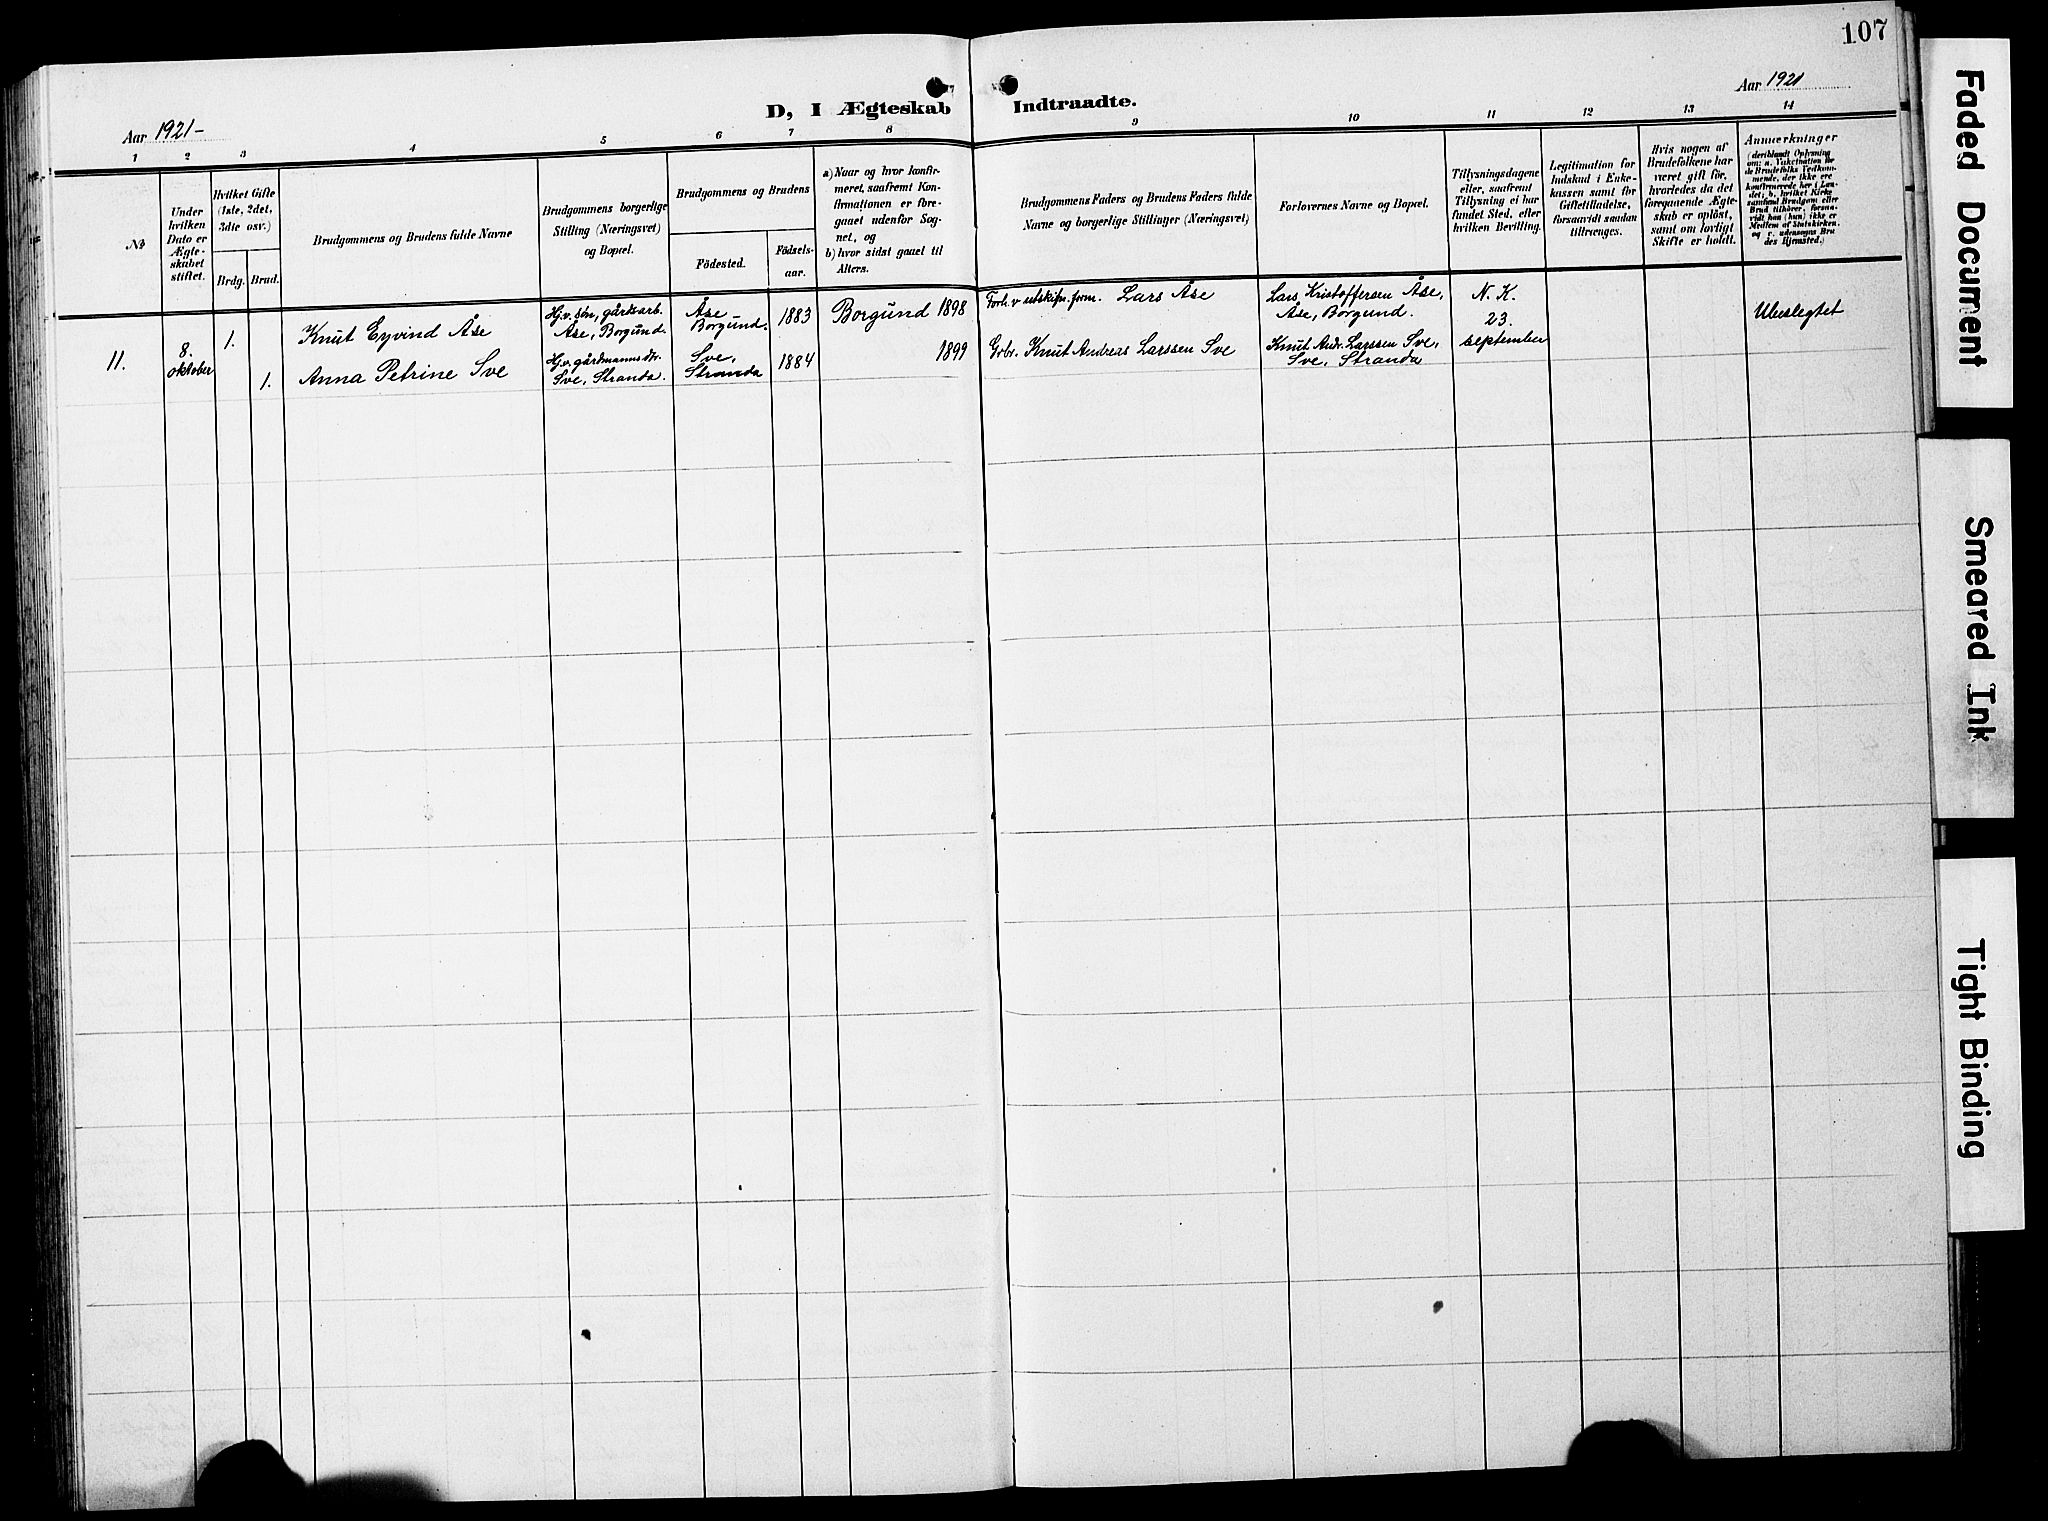 107
Aar 1921-
D, I Ægteskab Indtraadte.
Aar 1921
1 2 3 4 5 6 7 8 9 10 11 12 13 14
№
Under
hvilken
Dato er
Ægte-
skabet
stiftet.
Hvilket Gifte
(1ste, 2det,
3die osv.)
Brdg. Brud.
Brudgommens og Brudens fulde Navne
Brudgommens borgerlige
Stilling (Næringsvei)
og Bopæl.
Brudgommens og Brudens
Födested.
Födsels-
aar.
a) Naar og hvor konfir-
meret, saafremt Kon-
firmationen er fore-
gaaet udenfor Sog-
net, og
b) hvor sidst gaaet til
Alters.
Brudgommens Faders og Brudens Faders fulde
Navne og borgerlige Stillinger (Næringsvei)
Forlovernes Navne og Bopæl.
Tillysningsdagene
eller, saafremt
Tillysning ei har
fundet Sted, efter
hvilken Bevilling.
Legitimation for
Indskud i Enke-
kassen samt for
Giftetilladelse,
forsaavidt saadan
tiltrænges.
Hvis nogen af
Brudefolkene har
været gift för,
hvorledes da det
foregaaende Ægte-
skab er oplöst,
samt om lovligt
Skifte er holdt.
Anmærkninger
(deriblandt Oplysning
om: a. Vakcination for
de Brudefolks Vedkom-
mende, der ikke ere
konfirmerede her i Lan-
det; b. hvilket Kirke
samfund Brudgom eller
Brud tilhörer, forsaa-
vidt han (hun) ikke er
Medlem af Statskirken,
og c. udensogns Bru
des Hjemsted.)
11.
8.
oktober
1.
Knut Eyvind Åse
Hj.v. søn, gårdsarb.
Åse, Borgund.
Åse
Borgund.
1883
Borgund 1898
Forh.v. utskiftn.form. Lars Åse
Lars Kristoffersen Åse,
Åse, Borgund.
N. K.
23.
september
Ubeslegtet
1.
Anna Petrine Sve
Hj.v. gårdmannsdtr.
Sve, Stranda.
Sve,
Stranda
1884
1899
Grbr. Knut Andreas Larssen Sve
Knut Andr. Larssen Sve,
Sve, Stranda
Faded Document
Smeared Ink
Tight Binding